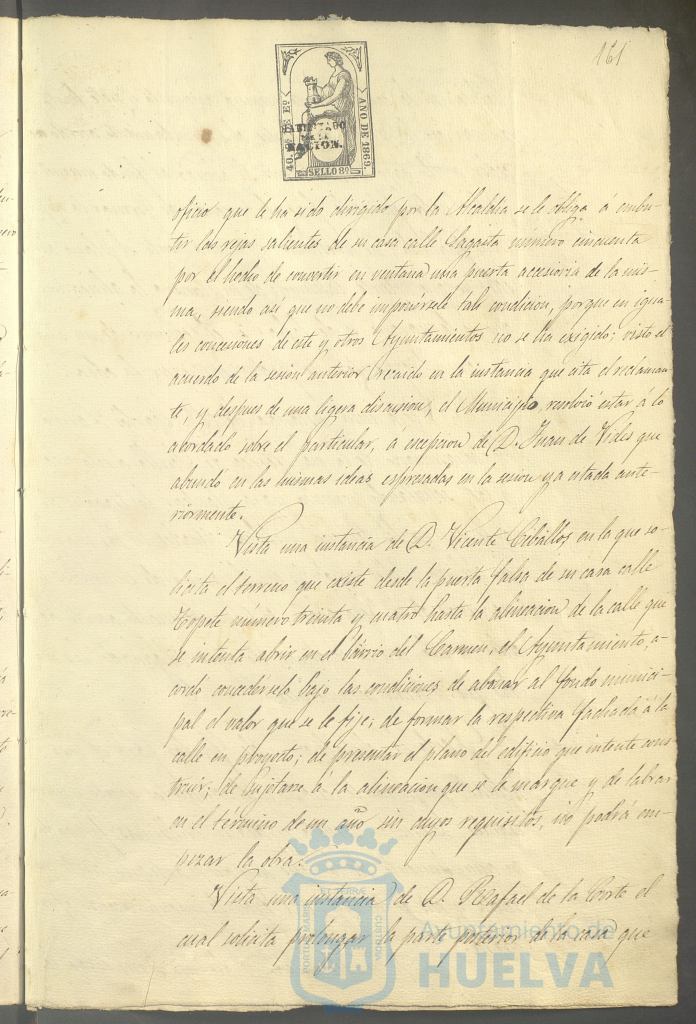 161
40. Cs DE Eo
AÑO DE 1869.
HABILITADO
POR LA
NACION.
SELLO 8º
oficio que le ha sido dirigido por la Alcaldia se le obliga á embu-
tir las rejas salientes de su casa calle Sagasta número cincuenta
por el hecho de convertir en ventana una puerta accesoria de la mis-
ma, siendo así que no debe imponérsele tal condicion, porque en igua-
les concesiones de este y otros Ayuntamientos no se ha exigido; visto el
acuerdo de la sesion anterior recaido en la instancia que cita el reclaman-
te, y despues de una ligera discusion, el Municipio resolvió estar á lo
acordado sobre el particular, a escepcion de D. Juan de Vides que
abundó en las mismas ideas espresadas en la sesion ya citada ante-
riormente.
Vista una instancia de D. Vicente Ceballos en la que so-
licita el terreno que existe desde la puerta falsa de su casa calle
Topete número treinta y cuatro hasta la alineacion de la calle que
se intenta abrir en el barrio del Carmen, el Ayuntamiento, a-
cordo concedérselo bajo las condiciones de abonar al fondo munici-
pal el valor que se le fije; de formar la respectiva fachada á la
calle en proyecto; de presentar el plano del edificio que intente cons-
truir; de sujetarse á la alineacion que se le marque y de labrar
en el término de un año sin cuyos requisitos, no podrá em-
pezar la obra.
Vista una instancia de D. Rafael de la Corte el
cual solicita prolongar la parte posterior de la casa que
Ayuntamiento de
HUELVA